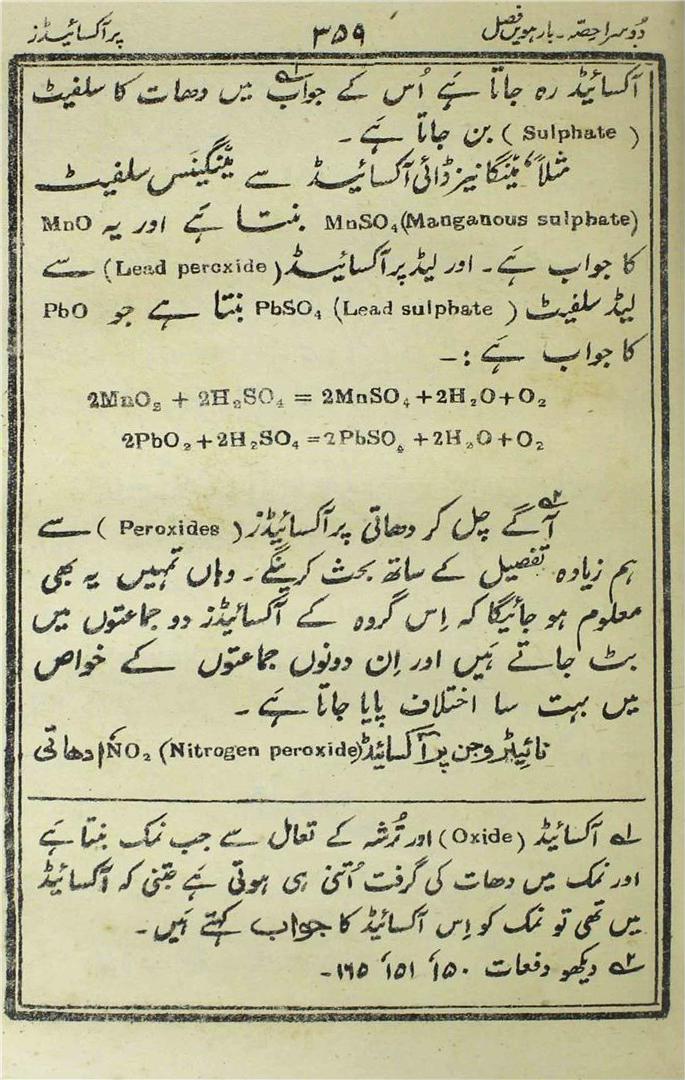 دُوسرا حِصّہ ۔ بارہویں فصل ۳۵۹ پر آکسائیڈز
آکسائیڈ رہ جاتا ہَے اُس کے جواب۱؎ میں دھات کا سلفیٹ
( Sulphate ) بن جاتا ہَے ۔
مثلاً مَینگانیز ڈائی آکسائیڈ سے مَینگینَس سلفیٹ
MnSO₄(Manganous sulphate) بنتا ہَے اور یہ MnO
کا جواب ہَے ۔ اور لیڈ پر آکسائیڈ (Lead peroxide) سے
لیڈ سلفیٹ PbSO₄ (Lead sulphate ) بنتا ہے جو PbO
کا جواب ہَے :۔
2MnO₂ + 2H₂SO₄ = 2MnSO₄+2H₂O+O₂
2PbO₂+2H₂SO₄=2PbSO₄ +2H₂O+O₂
آگے۲؎ چل کر دھاتی پر آکسائیڈز ( Peroxides ) سے
ہم زیادہ تفصیل کے ساتھ بحث کرینگے ۔ وہاں تمہیں یہ بھی
معلوم ہو جائیگا کہ اِس گروہ کے آکسائیڈز دو جماعتوں میں
بٹ جاتے ہَیں اور اِن دونوں جماعتوں کے خواص
میں بہت سا اختلاف پایا جاتا ہَے ۔
نائیٹروجن پر آکسائیڈ NO₂ (Nitrogen peroxide) ادھاتی
۱؎ آکسائیڈ (Oxide) اور تُرشہ کے تعامل سے جب نمک بنتا ہَے
اور نمک میں دھات کی گرفت اُتنی ہی ہوتی ہَے جتنی کہ آکسائیڈ
میں تھی تو نمک کو اِس آکسائیڈ کا جواب کہتے ہَیں ۔
۲؎ دیکھو دفعات ۱۵۰ أ ۱۵۱ أ ۱۶۵ ۔